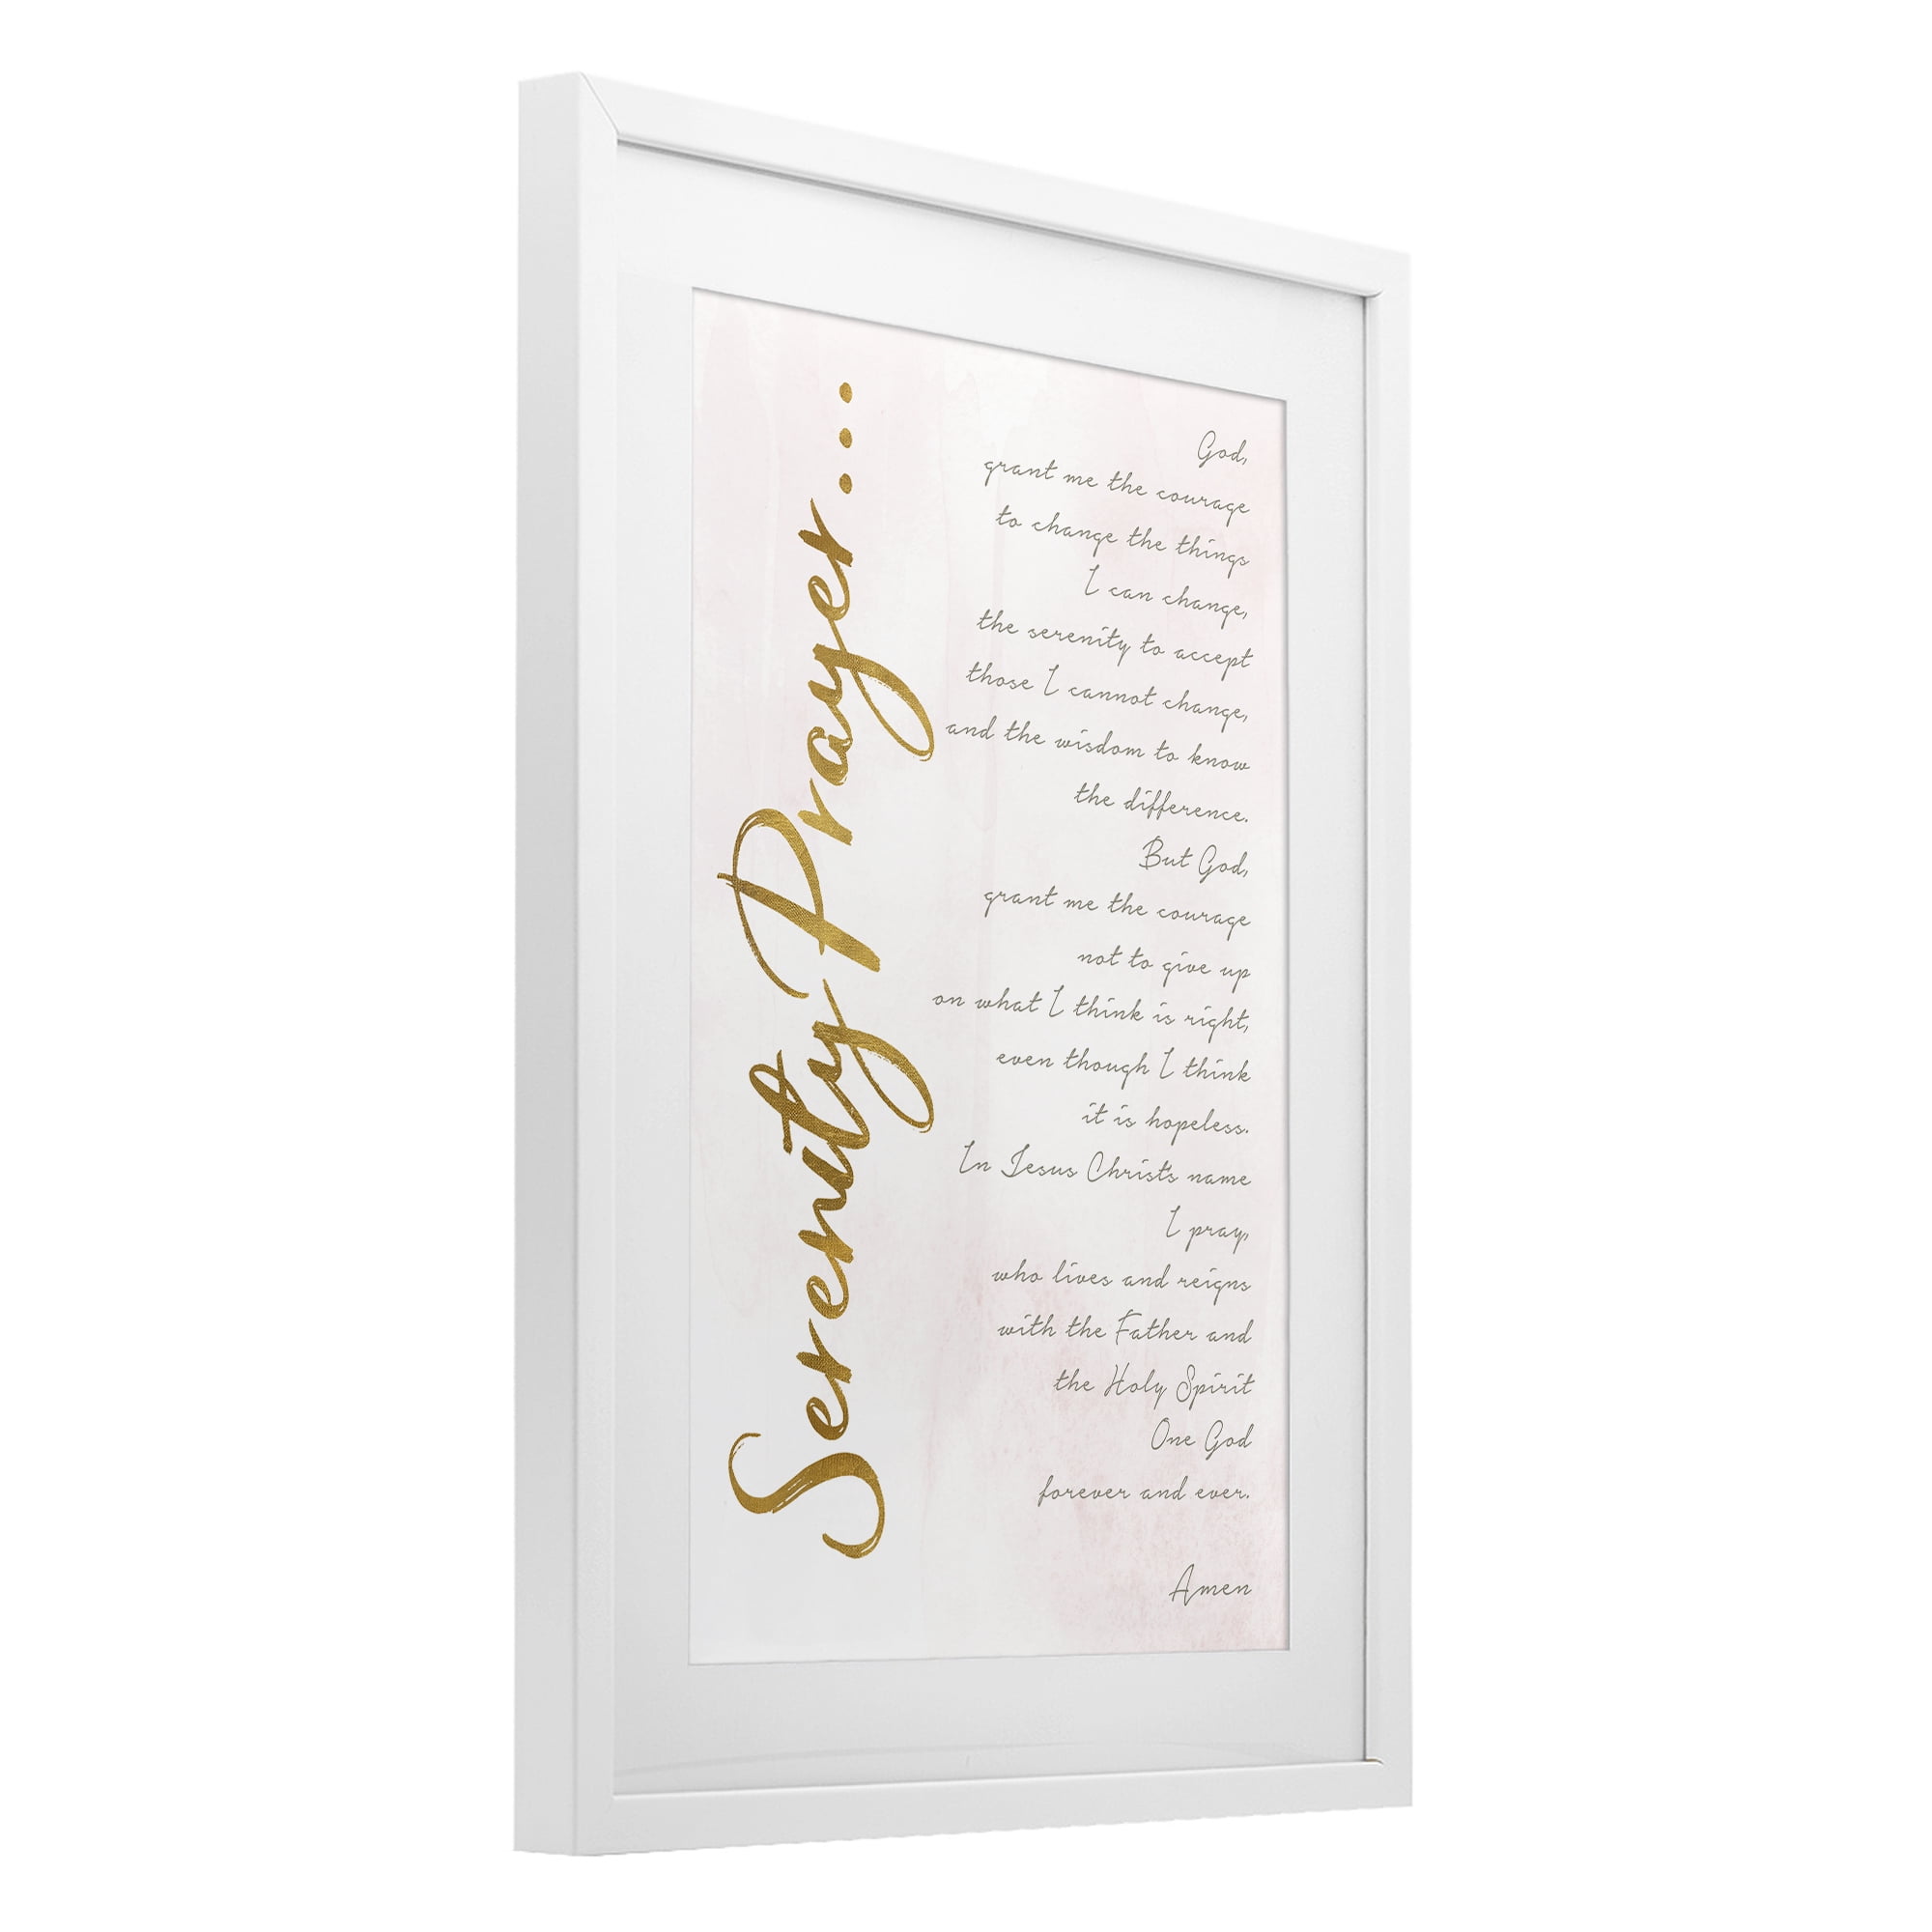 Serenity Prayer...
God,
grant me the courage
to change the things
I can change,
the serenity to accept
those I cannot change,
and the wisdom to know
the difference.
But God,
grant me the courage
not to give up
on what I think is right,
even though I think
it is hopeless.
In Jesus Christ's name
I pray,
who lives and reigns
with the Father and
the Holy Spirit
One God
forever and ever.
Amen